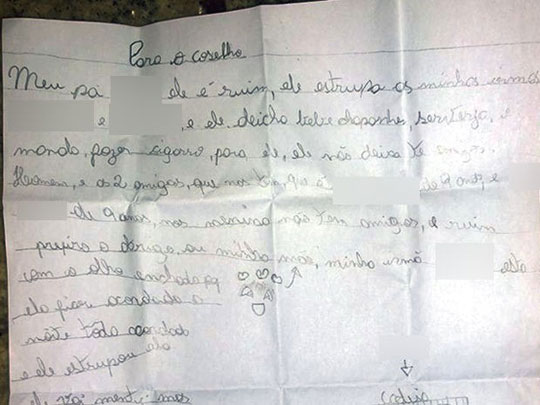 Para o coselho
Meu pa ele é ruim, ele estrupa as minhas irmas
e , e ele deicha bebe chapanhe, serveja, e
manda, fazer sigarro, para ele, ele não deixa te amigos.
Homem, e as 2 amigas, que nos tem, é a de 9 anos, e
de 9 anos, nos menina não tem amigos, é ruim
prefiro o abrigo, ou minha mãe, minha irmã esta
com o olho enchado pq
ela ficou acordada a
noite toda acordado
e ele estrupou ela
ele vai